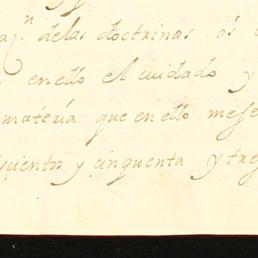 aç.ⁿ delas doctrinas os
en ello el cuidado y
materia que en ello mese
scientos y cinquenta y tres